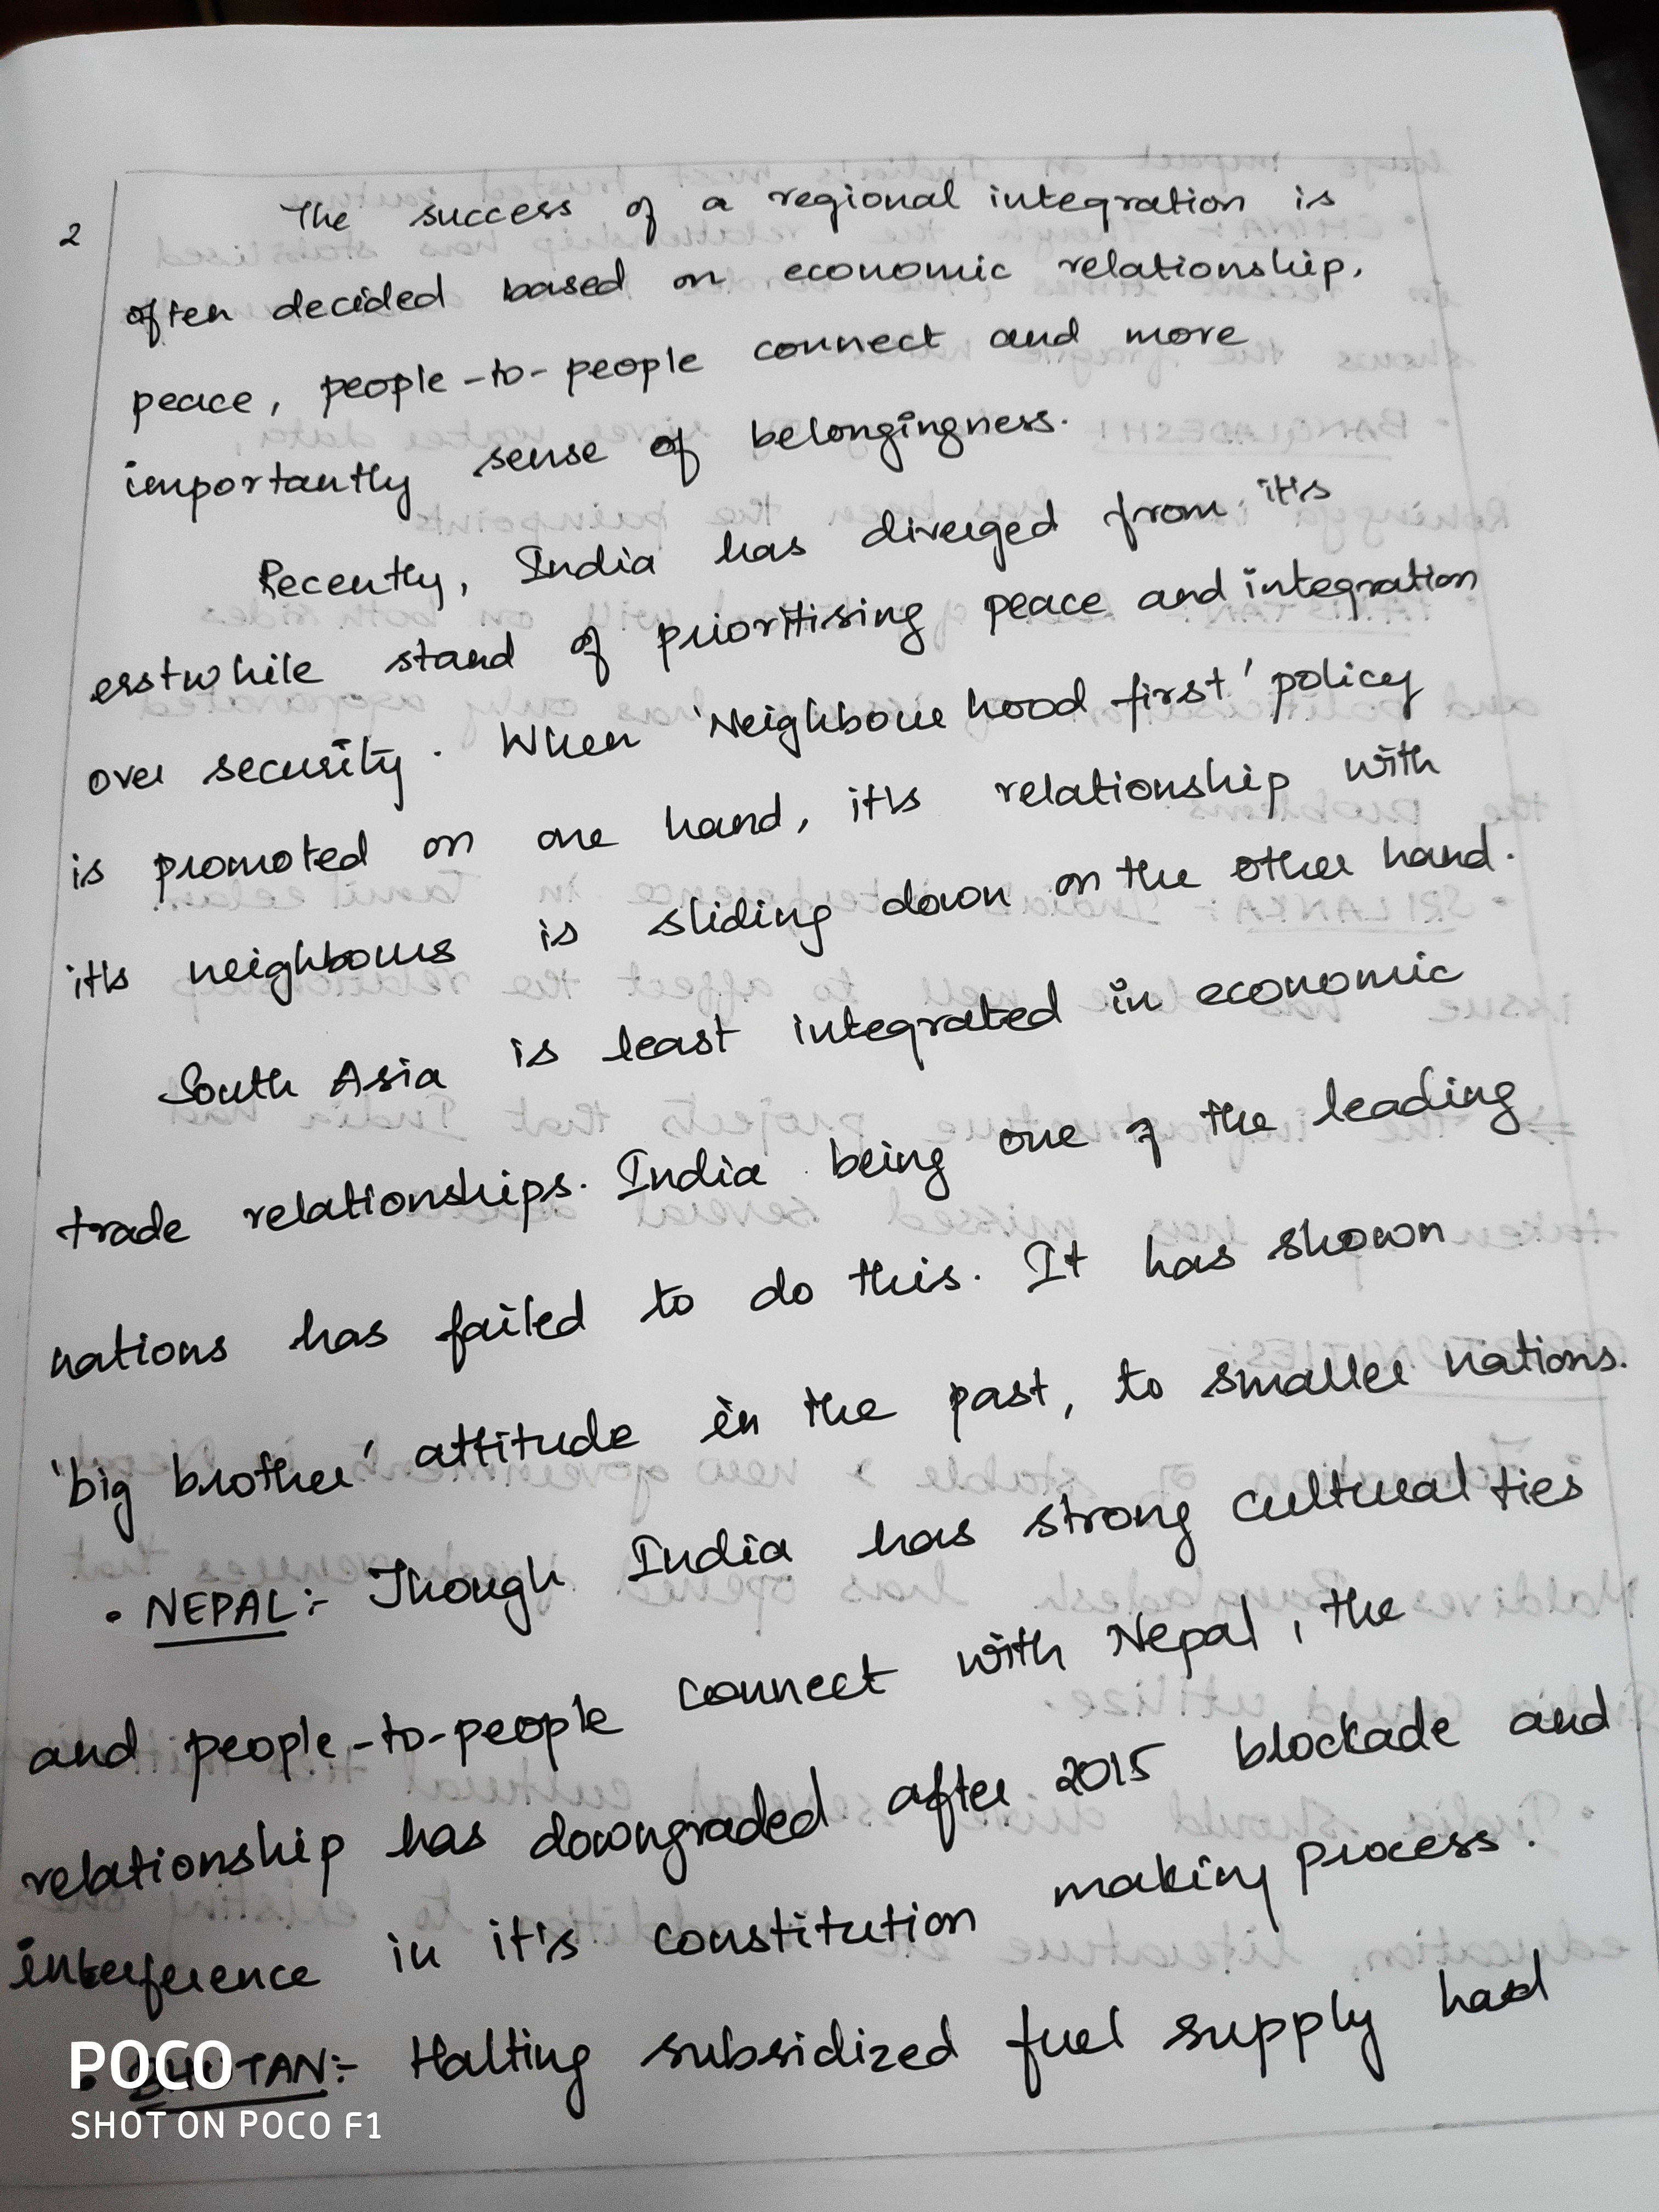 2
The success of a regional integration is
often decided based on economic relationship,
peace, people-to-people connect and more
importantly sense of belongingness.
Recently, India has diverged from it's
erstwhile stand of prioritising peace and integration
over security. When 'Neighbour hood first' policy
is promoted on one hand, it's relationship with
it's neighbours is sliding down on the other hand.
South Asia is least integrated in economic
trade relationships. India being one of the leading
nations has failed to do this. It has shown
'big brother' attitude in the past, to smaller nations.
• NEPAL:- Though India has strong cultural ties
and people-to-people connect with Nepal, the
relationship has downgraded after 2015 blockade and
interference in it's constitution making process.
• BHUTAN:- Halting subsidized fuel supply had
POCO
SHOT ON POCO F1